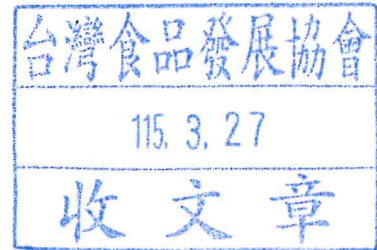 台灣食品發展協會
115. 3. 27
收文章